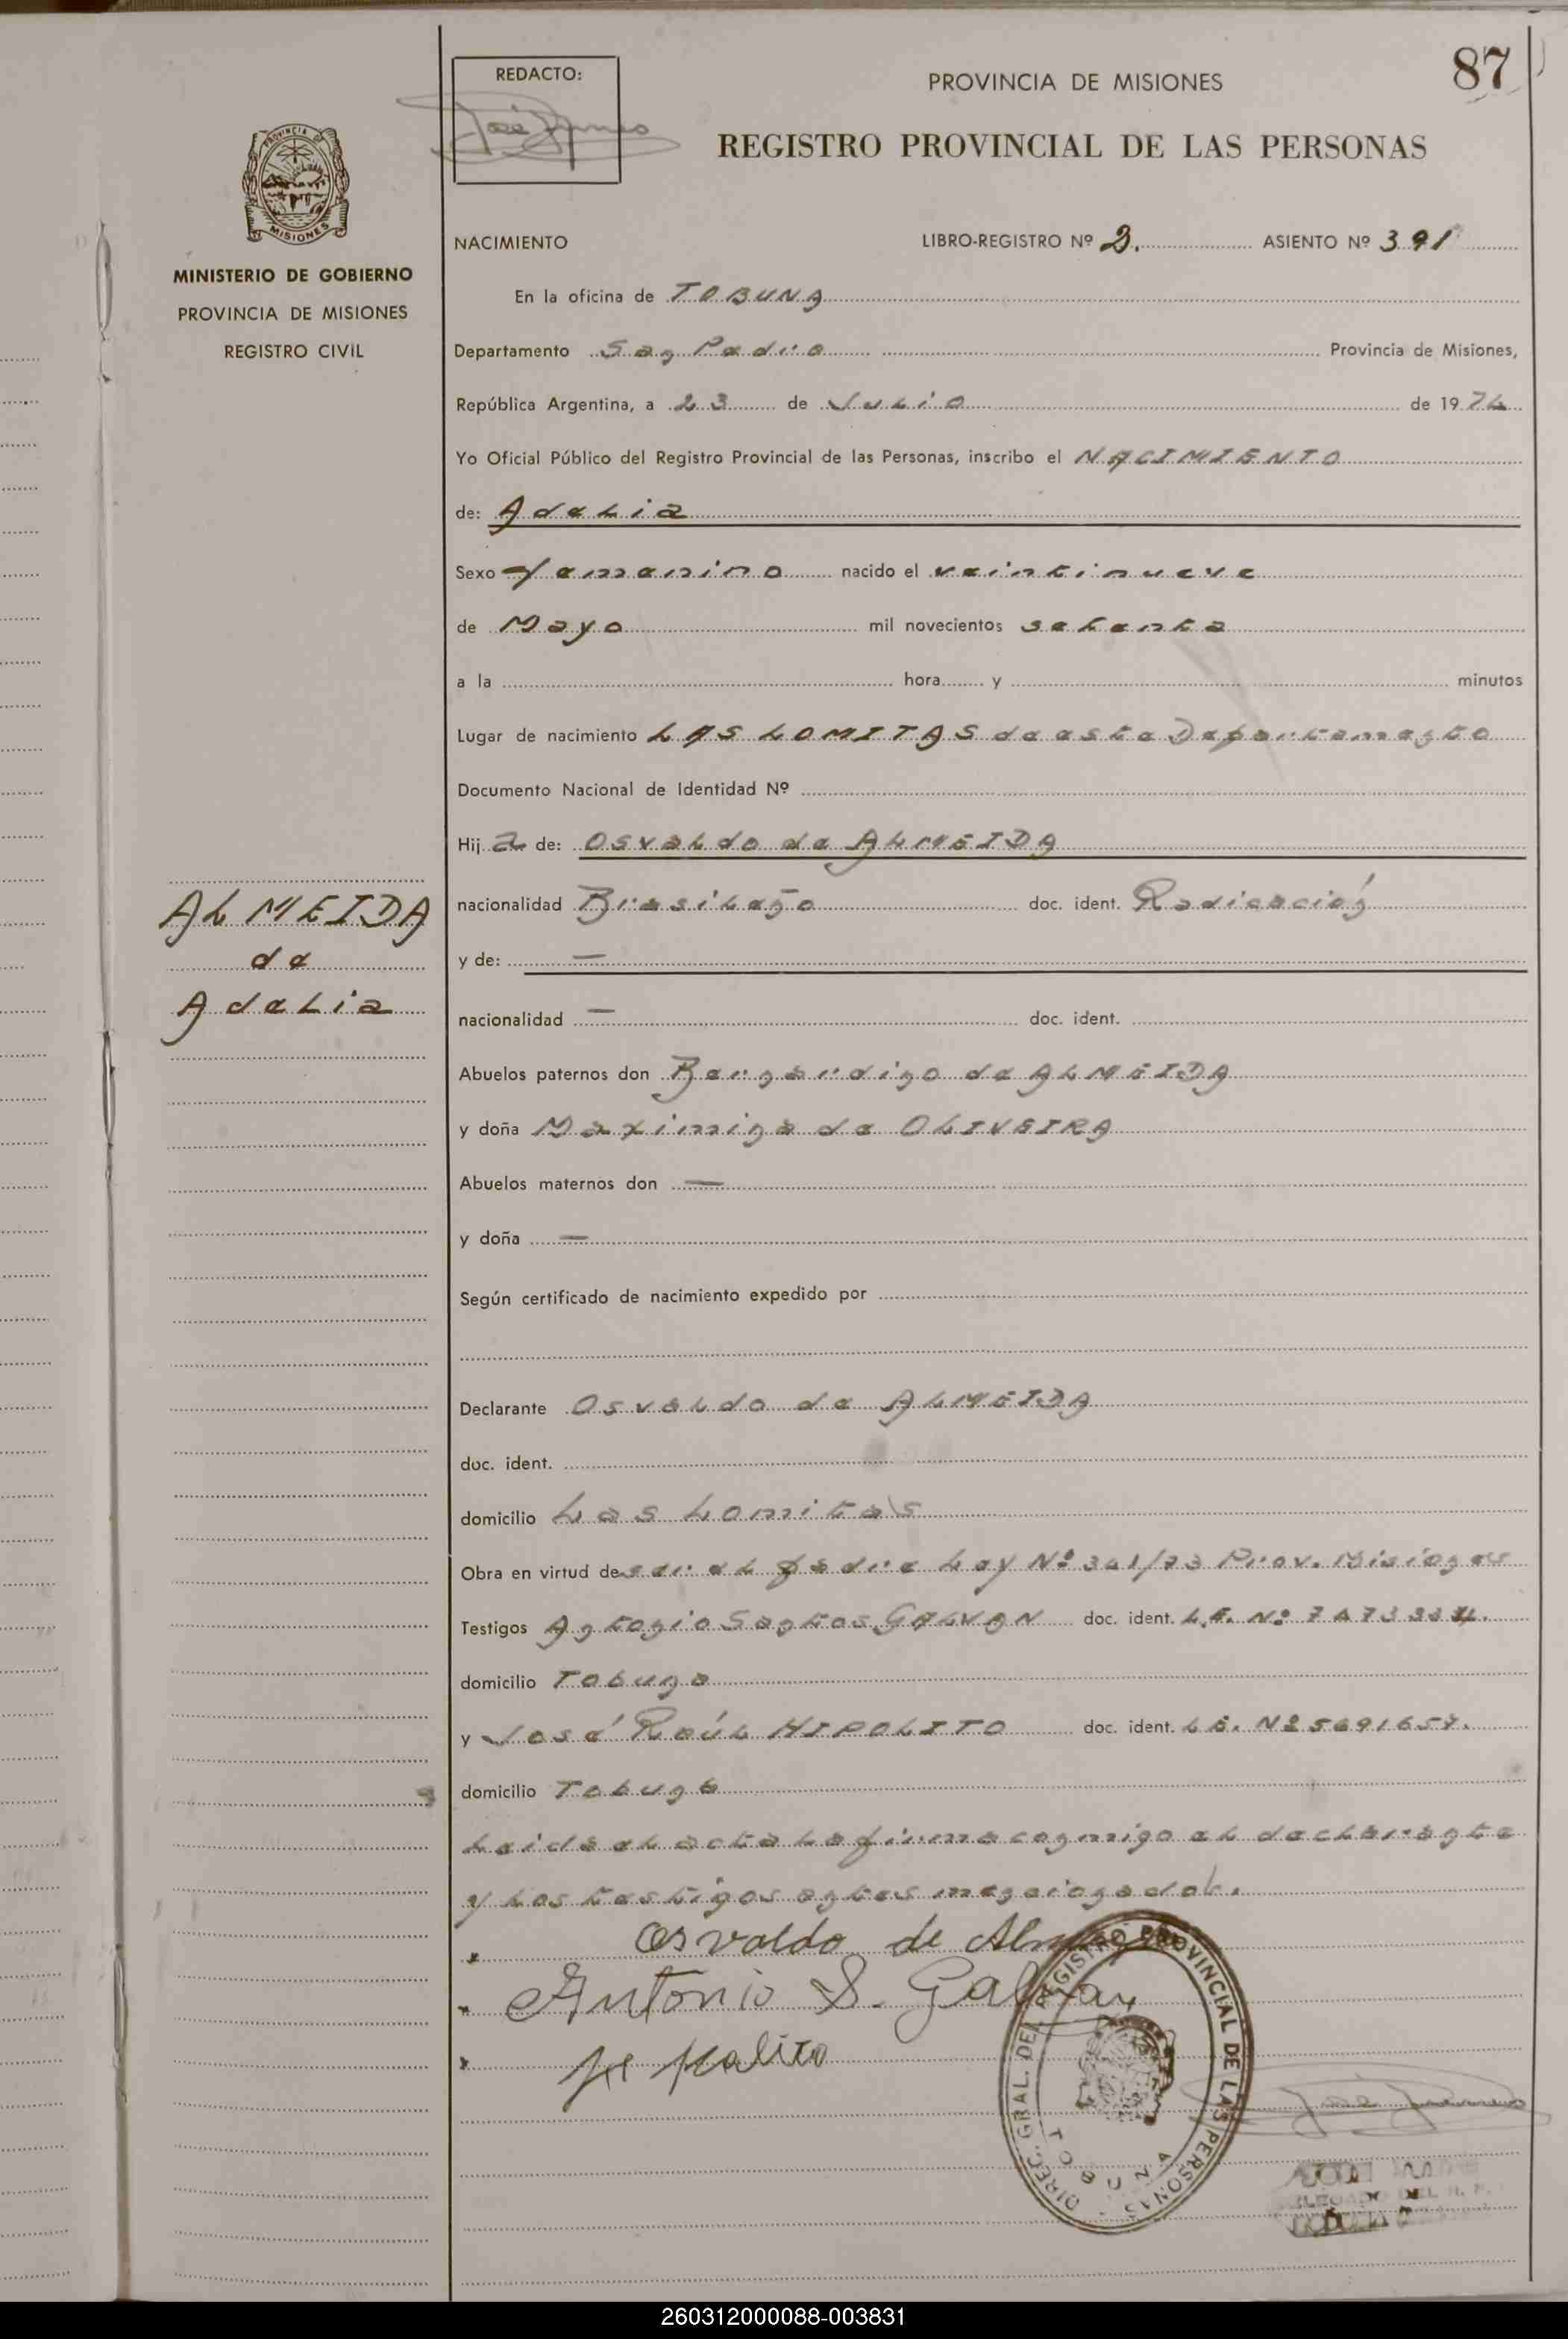 87
REDACTO:
PROVINCIA DE MISIONES
REGISTRO PROVINCIAL DE LAS PERSONAS
PROVINCIA DE
MISIONES
MINISTERIO DE GOBIERNO
PROVINCIA DE MISIONES
REGISTRO CIVIL
NACIMIENTO LIBRO-REGISTRO Nº 2. ASIENTO Nº 391
En la oficina de TOBUNA
Departamento San Pedro Provincia de Misiones,
República Argentina, a 23 de Julio de 1974
Yo Oficial Público del Registro Provincial de las Personas, inscribo el NACIMIENTO
de: Adelia
Sexo Femenino nacido el veintinueve
de Mayo mil novecientos setenta
a la hora y minutos
Lugar de nacimiento LAS LOMITAS de este Departamento
Documento Nacional de Identidad Nº
Hij a de: Osvaldo de ALMEIDA
nacionalidad Brasileño doc. ident. Radicación
y de: —
nacionalidad — doc. ident.
ALMEIDA
de
Adelia
Abuelos paternos don Bernardino de ALMEIDA
y doña Maximina de OLIVEIRA
Abuelos maternos don —
y doña —
Según certificado de nacimiento expedido por
Declarante Osvaldo de ALMEIDA
doc. ident.
domicilio Las Lomitas
Obra en virtud de ser el padre Ley Nº 341/73 Prov. Misiones
Testigos Antonio Santos GALVAN doc. ident. L.E. Nº
domicilio Tobuna
y José Raúl HIPOLITO doc. ident. L.E. Nº 5691657.
domicilio Tobuna
Leida el acta la firma conmigo el declarante
y los testigos antes mencionados.
Osvaldo de
Antonio S. Galvan
DIREC. GRAL. DEL REGISTRO PROVINCIAL DE LAS PERSONAS
TOBUNA
260312000088-003831